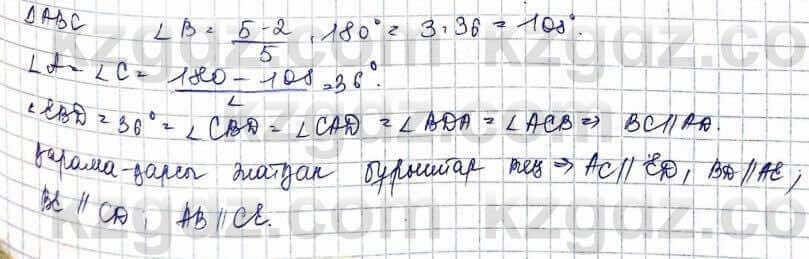 ΔABC ∠B = 5-2/5 · 180° = 3·36 = 108°.
∠A = ∠C = 180-108/2 = 36°.
∠EBD = 36° = ∠CBD = ∠CAD = ∠BDA = ∠ACB ⇒ BC//AD.
қарама-қарсы жатқан бұрыштар тең ⇒ AC//ED, BD//AE,
BE // CD, AB//CE.
kzgdz.com